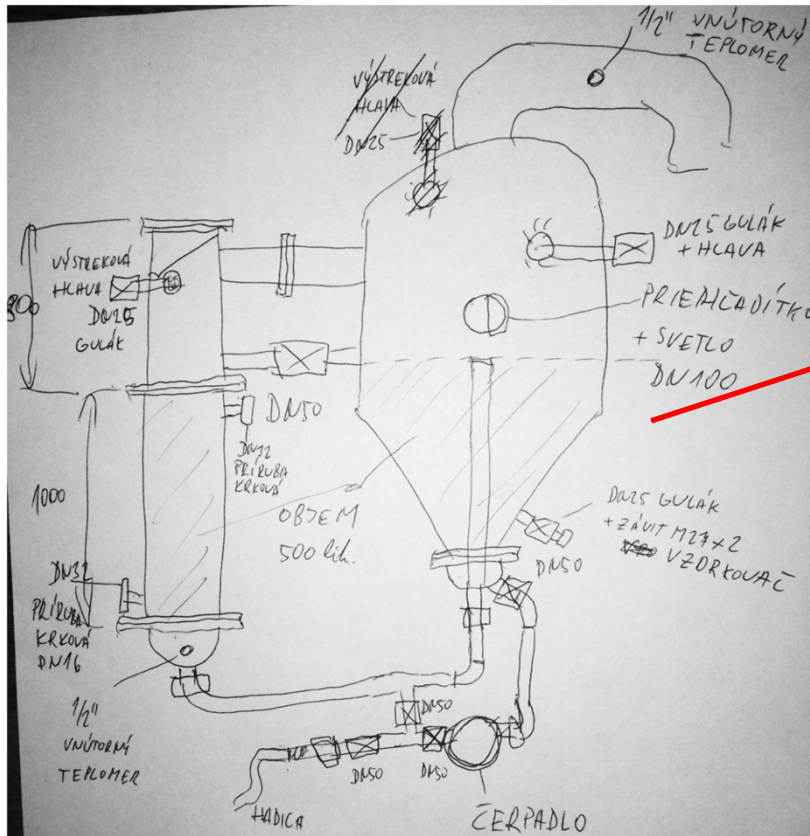 1/2" VNÚTORNÝ
TEPLOMER
VÝSTREKOVÁ
HLAVA
DN25
DN25 GULÁK
+ HLAVA
VÝSTREKOVÁ
HLAVA
DN25
GULÁK
PRIEHĽADÍTKO
+ SVETLO
DN100
DN50
DN32
PRÍRUBA
KRKOVÁ
1000
OBJEM
500 lit.
DN25 GULÁK
+ ZÁVIT M27x2
VZORKOVAČ
DN50
DN32
PRÍRUBA
KRKOVÁ
DN16
1/2"
VNÚTORNÝ
TEPLOMER
DN50
DN50
DN50
HADICA
ČERPADLO